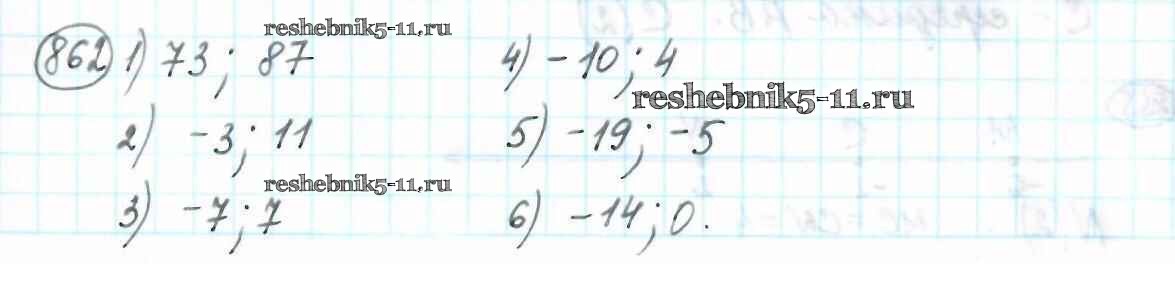 reshebnik5-11.ru
862 1) 73; 87 4) -10; 4
reshebnik5-11.ru
2) -3; 11 5) -19; -5
reshebnik5-11.ru
3) -7; 7 6) -14; 0.